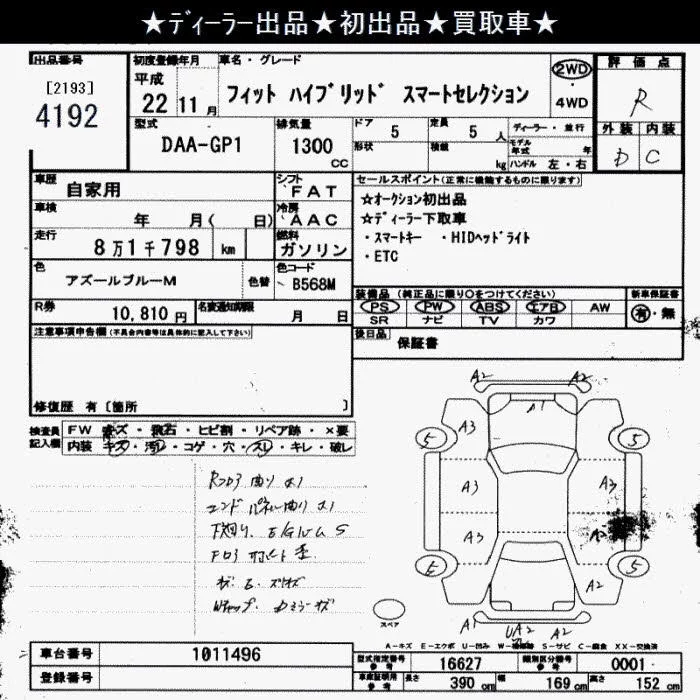 ★ディーラー出品★初出品★買取車★
出品番号
[2193]
4192
初度登録年月
平成
22 11月
車名・グレード
フィット ハイブリッド スマートセレクション
2WD
・
4WD
評価点
R
外装 内装
D C
型式
DAA-GP1
排気量
1300
cc
ドア 5
形状
定員 5 人
積載 kg
ディーラー・並行
モデル年式 年
ハンドル 左・右
車歴
自家用
シフト
FAT
車検
年 月( 日)
冷房
AAC
走行
8万1千798 km
燃料
ガソリン
色
アズールブルーM
色替
色コード
B568M
R券
10,810円
名変通知期限
月 日
セールスポイント(正常に機能するものに限ります)
★オークション初出品
★ディーラー下取車
・スマートキー ・HIDヘッドライト
・ETC
装備品 (純正品に限り○をつけてください)
PS PW ABS エアB AW
SR ナビ TV カワ
新車保証書
有・無
後日品
保証書
注意事項申告欄(不具合内容等は具体的に記入して下さい)
修復歴 有〔箇所 〕
検査員記入欄
FW キズ・飛石・ヒビ割・リペア跡・×要
内装 キズ・汚レ・コゲ・穴・スレ・キレ・破レ
エンドパネル曲り
A2 A2
A1
A3
5 5
A3 A3
A3
E 5
A2
A1 UA2 A2
スペア
A-キズ E-エクボ U-凹み W-補修跡 S-サビ C-腐食 XX-交換済
車台番号
1011496
登録番号
型式指定番号
参考
16627
類別区分番号
参考
0001
車庫証明用
参考
長さ 390 cm
幅 169 cm
高さ 152 cm